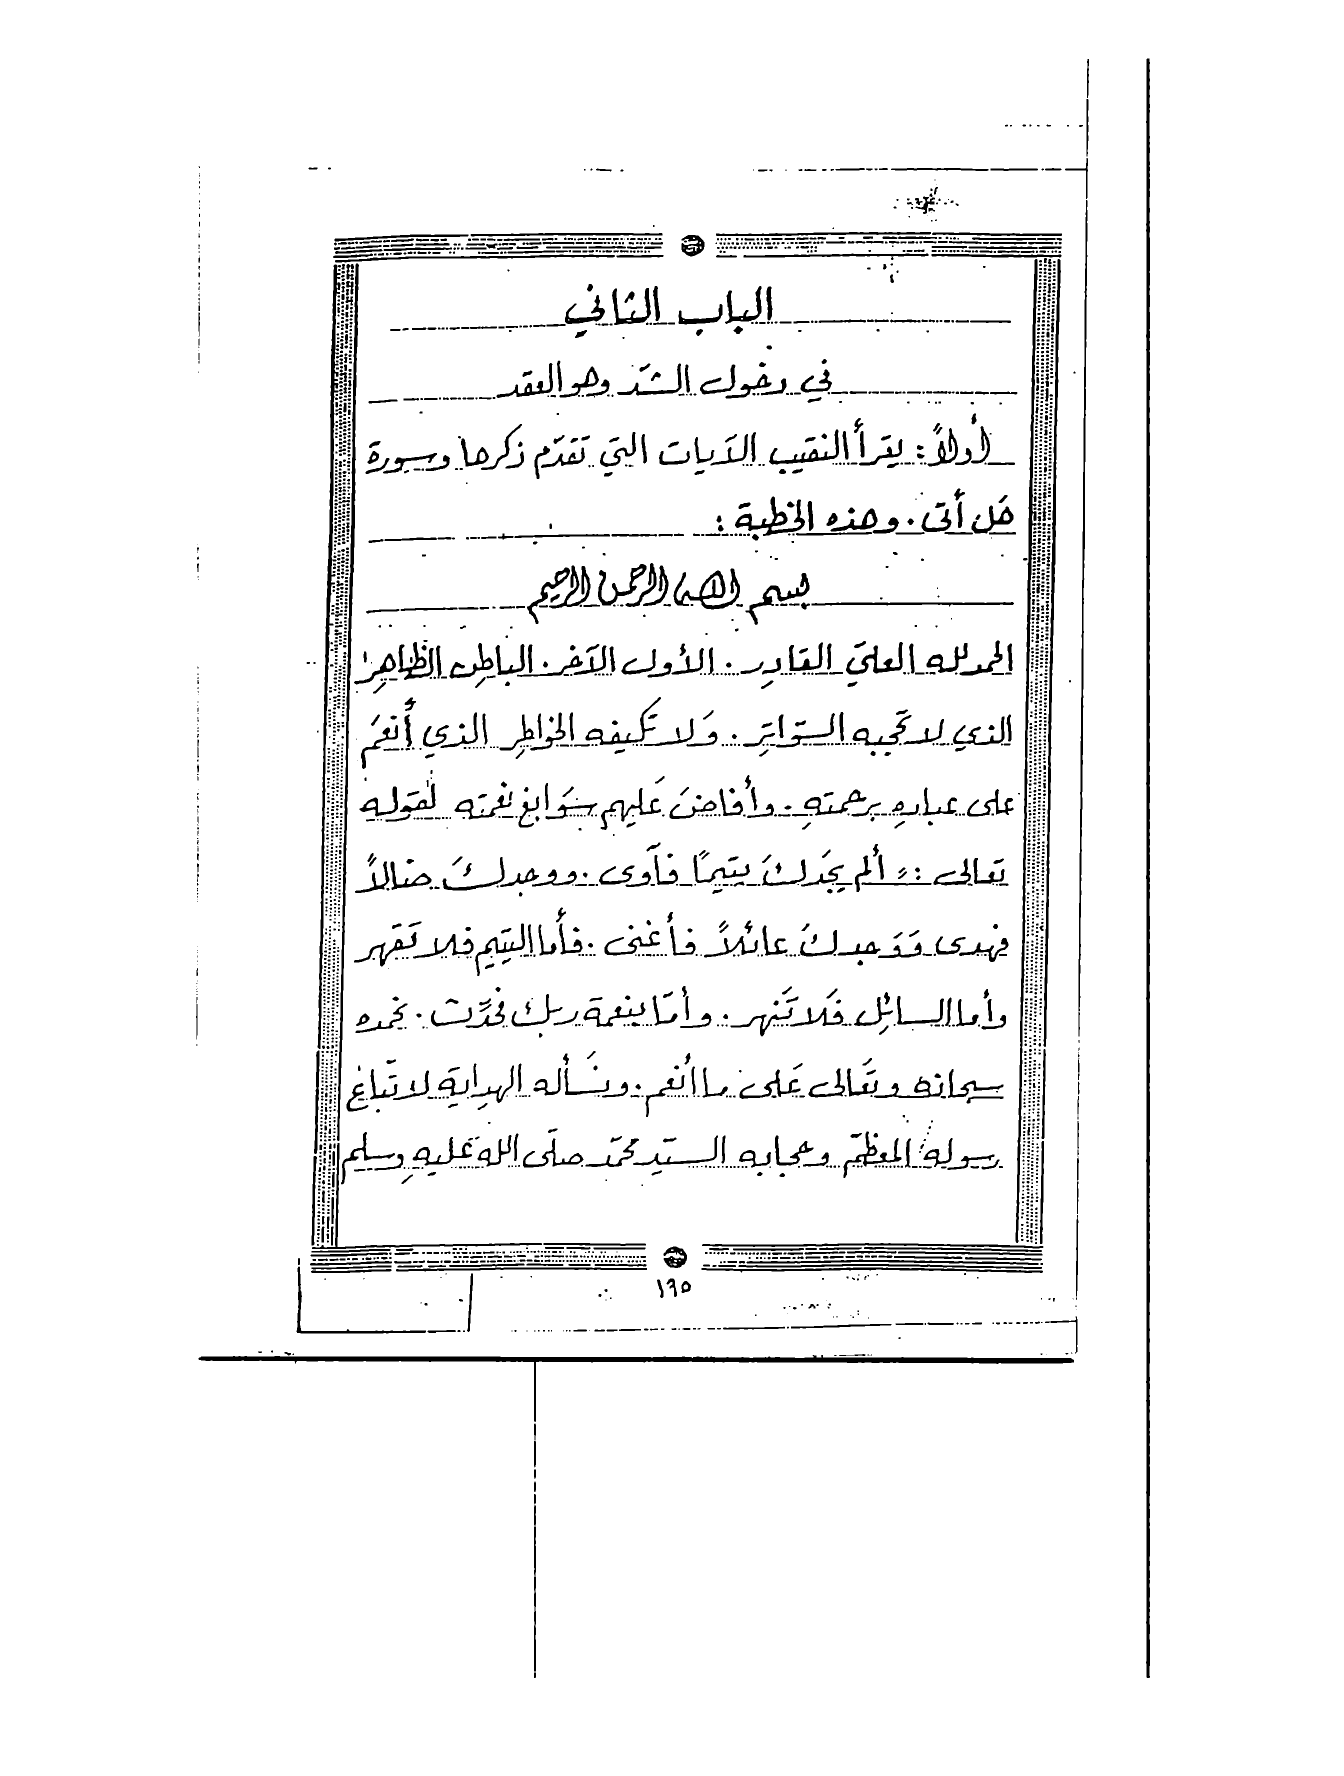 الباب الثاني
في دخول الشدّ وهو العقد
أولاً: يقرأ النقيب الآيات التي تقدّم ذكرها وسورة
هَل أتى. وهذه الخطبة:
بسم الله الرحمن الرحيم
الحمد لله العليّ القادِر. الأول الآخر. الباطِن الظاهِر
الذي لا تحَجبه السّتواتِر. وَلا تكَيفه الخواطِر الذي أُنعَمَ
على عبادهِ برحمتهِ. وأفاضَ عَليهم سَوابغ نعمته لقوله
تعالى: " ألم يجَدكَ يتيمًا فآوى. ووجدكَ ضالاً
فهدى وَوَجدكَ عائلاً فأغنى. فأما اليتيم فلا تَقهر
وأما السائِل فَلا تَنهر. وأمّا بنعمة ربك فحدِّث. نحمده
سبحانه وتَعالى عَلى ما أنعم. ونَسأله الهدِاية لاتّباع
رسوله المعظمّ وحجابه السيّد محمّد صلّى الله عَليهِ وسلم
١٦٥